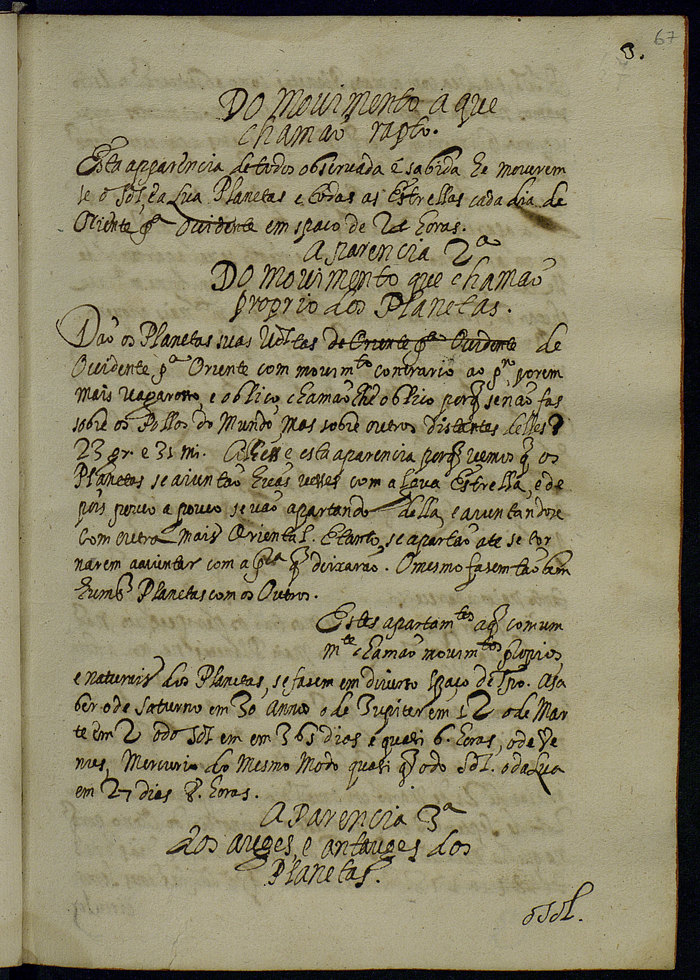 67
8.
Do Mouimento a que
chamaõ rapto.
Esta apparencia de todos obseruada e sabida he mouerem
se o Sol, e a Lua Planetas e todas as Estrellas cada dia de
Oriente pª Ocidente em espaço de 24 horas.
Aparencia 2ª
Do Mouimento que chamaõ
proprio dos Planetas.
Daõ os Planetas suas Voltas de Oriente pª Ocidente de
Ocidente pª Oriente com mouimto contrario ao pro, porem
mais uagaroso e oblico, chamaõ lhe oblico porq̃ se naõ fas
sobre os Pollos do Mundo, mas sobre outros distantes delles
23 gr. e 31 mi. esta aparencia porq̃ uemos q̃ os
Planetas se aiuntaõ huãs uesses com algua Estrella, e de
pois pouco a pouco se uaõ apartando della, e aiuntandose
com outra mais Oriental. E tanto se apartaõ ate se tor
narem aaiuntar com a pra q̃ deixaraõ. O mesmo fasem taõ bem
huns Planetas com os Outros.
Estes apartamtos aq̃ comum
mte chamaõ mouimtos proprios
e naturais dos Planetas, se fasem em diuerso espaço de Tpo. Asa
ber o de Saturno em 30 Annos o de Jupiter em 12 o de Mar
te em 2 o do Sol em em 365 dias e quasi 6. horas, o de Ve
nus, Mercurio do Mesmo Modo quasi q̃ o do Sol. o da Lua
em 27 dias 8. horas.
Aparencia 3ª
dos auges e antauges dos
Planetas.
o Sol.